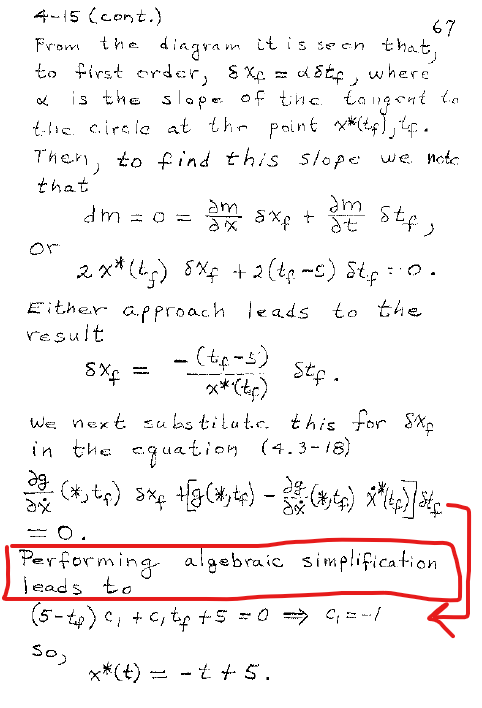 4-15 (cont.)
67
From the diagram it is seen that,
to first order, δx_f = αδt_f, where
α is the slope of the tangent to
the circle at the point x*(t_f), t_f.
Then, to find this slope we note
that
dm = 0 = ∂m/∂x δx_f + ∂m/∂t δt_f,
or
2x*(t_f) δx_f + 2(t_f-5) δt_f = 0.
Either approach leads to the
result
δx_f = -(t_f-5)/x*(t_f) δt_f.
We next substitute this for δx_f
in the equation (4.3-18)
∂g/∂ẋ (*,t_f) δx_f + [g(*,t_f) - ∂g/∂ẋ (*,t_f) ẋ*(t_f)] δt_f
= 0.
Performing algebraic simplification
leads to
(5-t_f) c₁ + c₁t_f + 5 = 0 ⟹ c₁ = -1
so,
x*(t) = -t + 5.